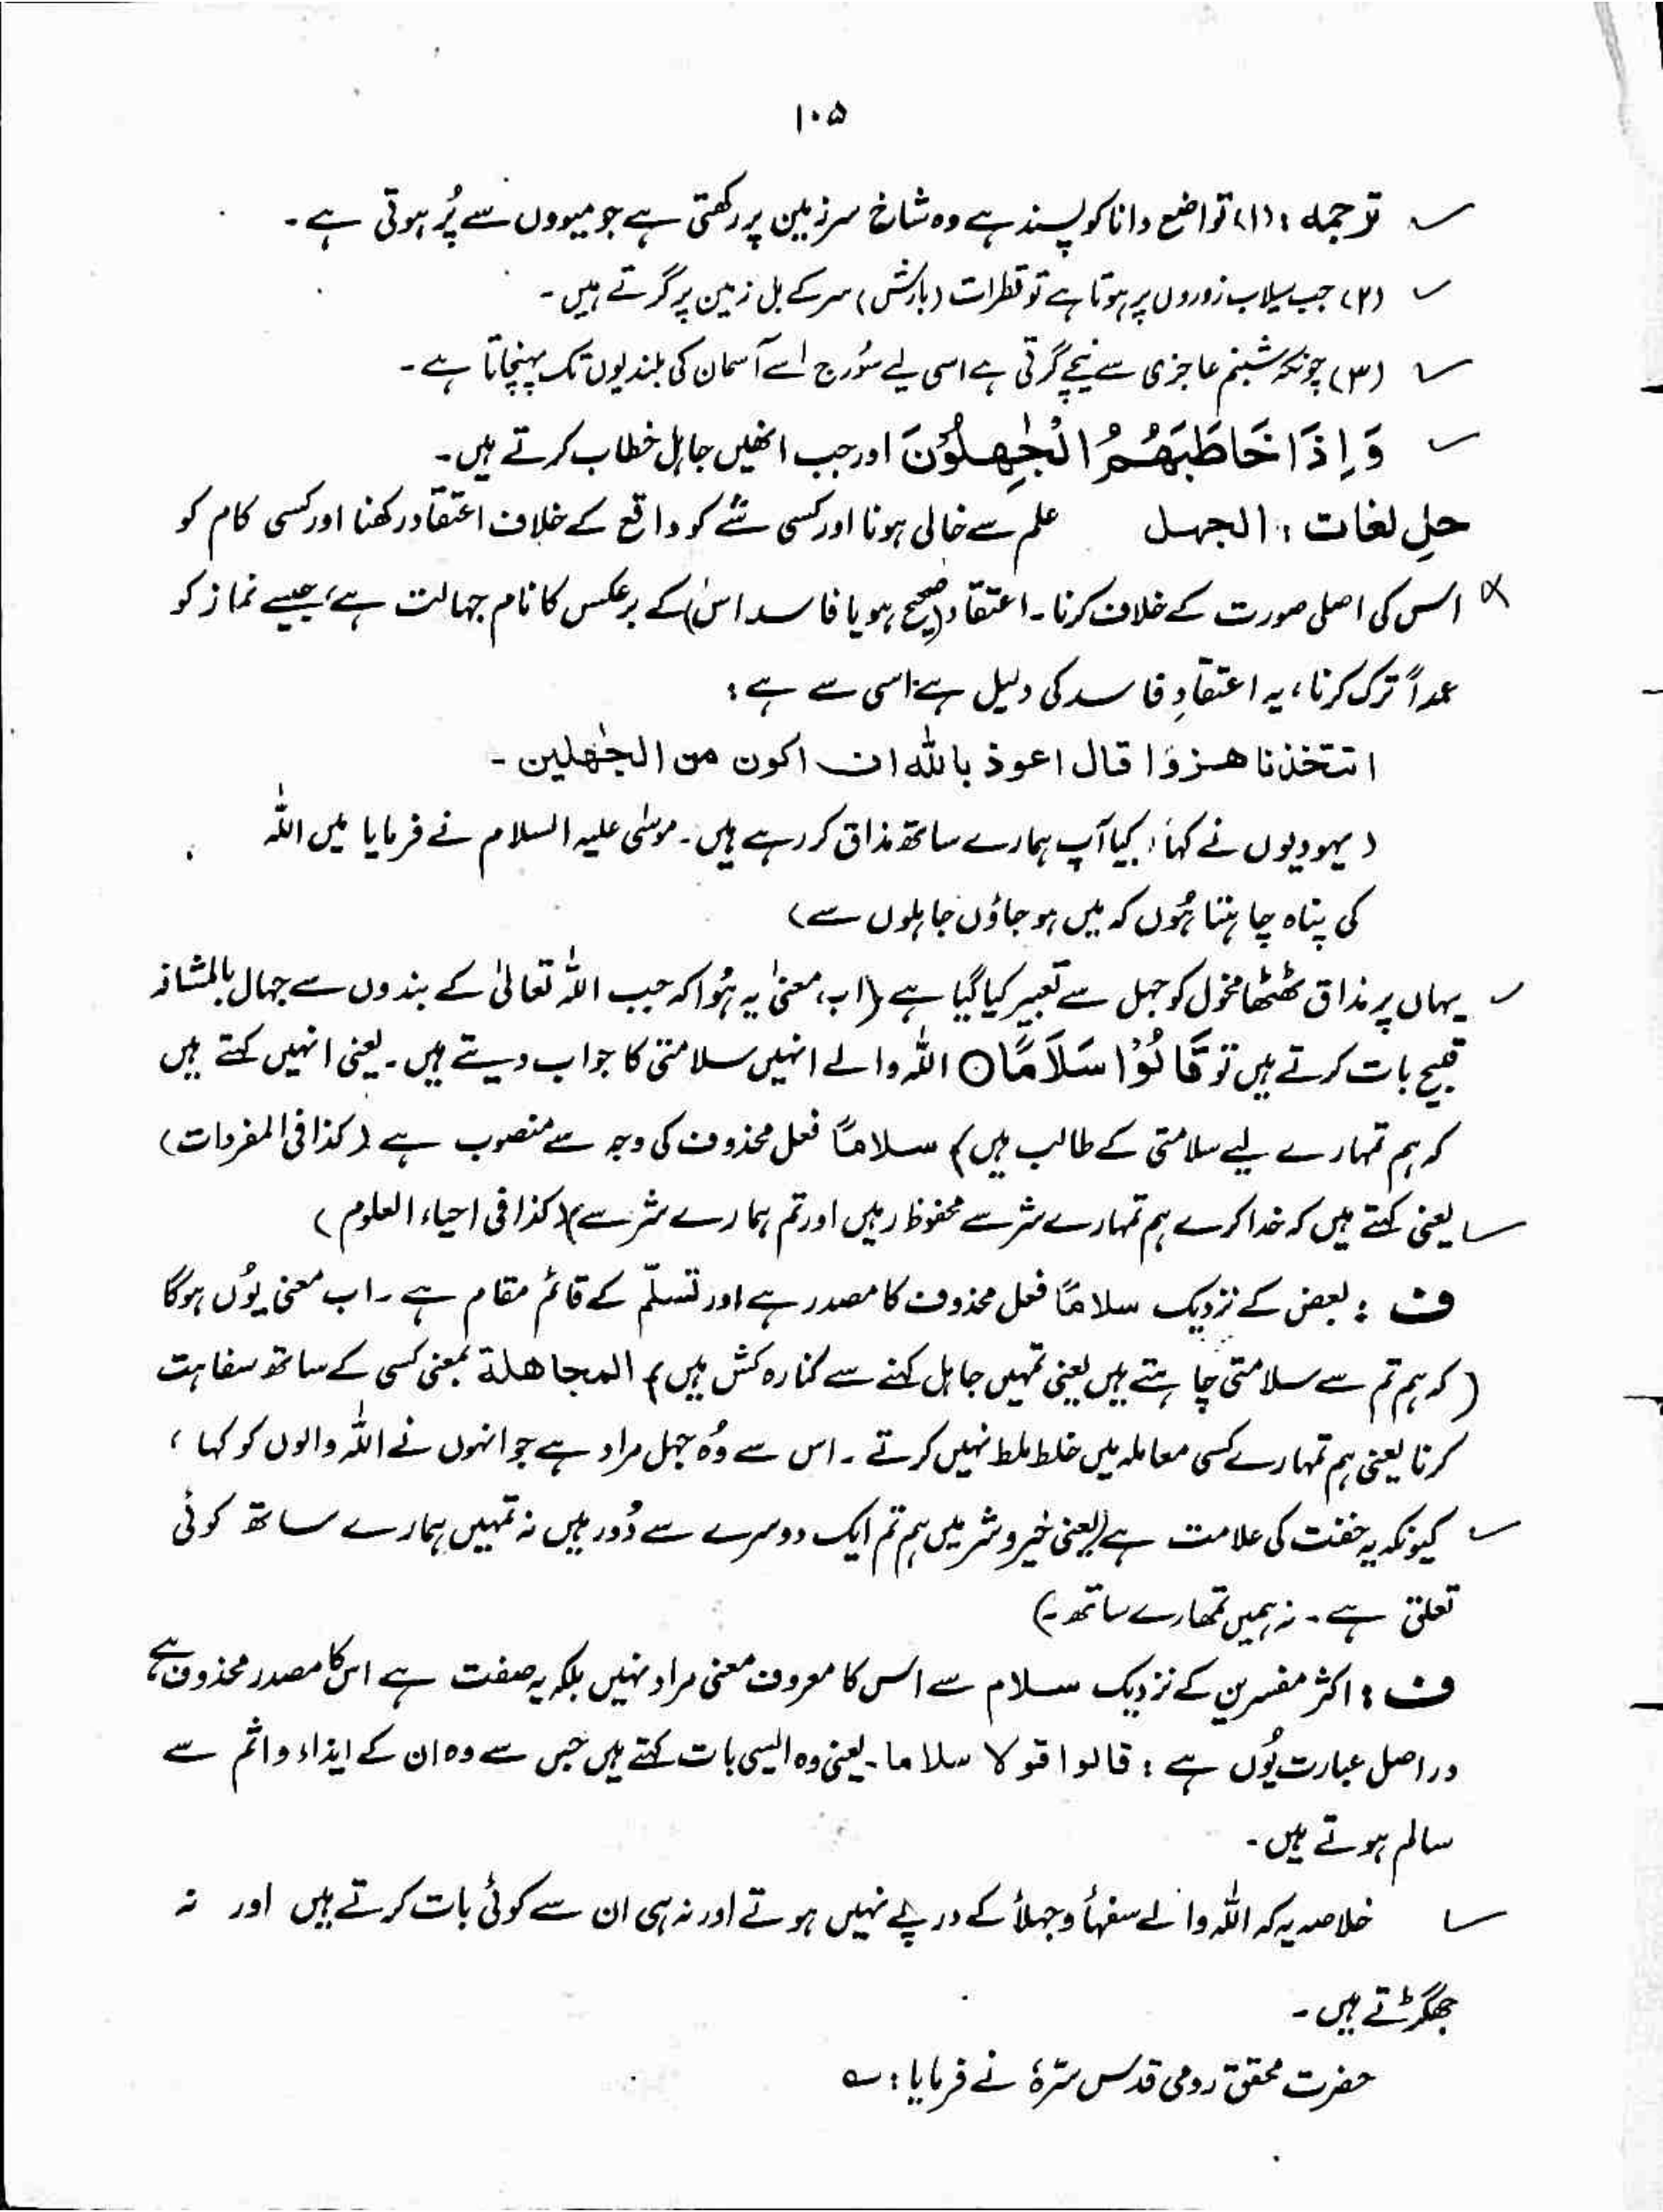 ۱۰۵
ترجمہ : (۱) تواضع دانا کو پسند ہے وہ شاخ سر زمین پر رکھتی ہے جو میووں سے پُر ہوتی ہے ۔
(۲) جب سیلاب زوروں پر ہوتا ہے تو قطرات (بارش) سر کے بل زمین پر گرتے ہیں ۔
(۳) چونکہ شبنم عاجزی سے نیچے گرتی ہے اسی لیے سُورج اسے آسمان کی بلندیوں تک پہنچاتا ہے ۔
وَ اِذَا خَاطَبَهُمُ الْجٰهِلُوْنَ اور جب انھیں جاہل خطاب کرتے ہیں ۔
حلِ لغات : الجهل علم سے خالی ہونا اور کسی شے کو واقع کے خلاف اعتقاد رکھنا اور کسی کام کو
اس کی اصلی صورت کے خلاف کرنا ۔ اعتقاد (صحیح ہو یا فاسد اس) کے برعکس کا نام جہالت ہے، جیسے نماز کو
عمداً ترک کرنا، یہ اعتقادِ فاسد کی دلیل ہے اسی سے ہے :
اتتخذنا هزوًا قال اعوذ بالله ان اکون من الجٰهلین ۔
( یہودیوں نے کہا، کیا آپ ہمارے ساتھ مذاق کر رہے ہیں ۔ موسٰی علیہ السلام نے فرمایا میں اللہ
کی پناہ چاہتا ہُوں کہ میں ہو جاؤں جاہلوں سے )
یہاں پر مذاق ٹھٹھا مخول کو جہل سے تعبیر کیا گیا ہے (اب معنیٰ یہ ہُوا کہ جب اللہ تعالیٰ کے بندوں سے جہال بالمشافہ
قبیح بات کرتے ہیں تو قَالُوْا سَلَامًا ○ اللہ والے انہیں سلامتی کا جواب دیتے ہیں ۔ یعنی انہیں کہتے ہیں
کہ ہم تمہارے لیے سلامتی کے طالب ہیں) سلامًا فعل محذوف کی وجہ سے منصوب ہے (کذا فی المفردات)
یعنی کہتے ہیں کہ خدا کرے ہم تمہارے شر سے محفوظ رہیں اور تم ہمارے شر سے) (کذا فی احیاء العلوم)
ف : بعض کے نزدیک سلامًا فعل محذوف کا مصدر ہے اور تسلّم کے قائم مقام ہے ۔ اب معنی یوُں ہوگا
( کہ ہم تم سے سلامتی چاہتے ہیں یعنی تمہیں جاہل کہنے سے کنارہ کش ہیں) المجاهلة بمعنی کسی کے ساتھ سفاہت
کرنا یعنی ہم تمہارے کسی معاملہ میں خلط ملط نہیں کرتے ۔ اس سے وُہ جہل مراد ہے جو انہوں نے اللہ والوں کو کہا ،
کیونکہ یہ خفت کی علامت ہے (یعنی خیر و شر میں ہم تم ایک دوسرے سے دُور ہیں نہ تمہیں ہمارے ساتھ کوئی
تعلق ہے ۔ نہ ہمیں تمھارے ساتھ ۔)
ف : اکثر مفسرین کے نزدیک سلام سے اس کا معروف معنی مراد نہیں بلکہ یہ صفت ہے اس کا مصدر محذوف ہے،
دراصل عبارت یُوں ہے : قالوا قولا سلاما ۔ یعنی وہ ایسی بات کہتے ہیں جس سے وہ ان کے ایذاء و اثم سے
سالم ہوتے ہیں ۔
خلاصہ یہ کہ اللہ والے سفہاً و جہلاً کے درپے نہیں ہوتے اور نہ ہی ان سے کوئی بات کرتے ہیں اور نہ
جھگڑتے ہیں ۔
حضرت محقق رومی قدس سّرہٗ نے فرمایا : ؎